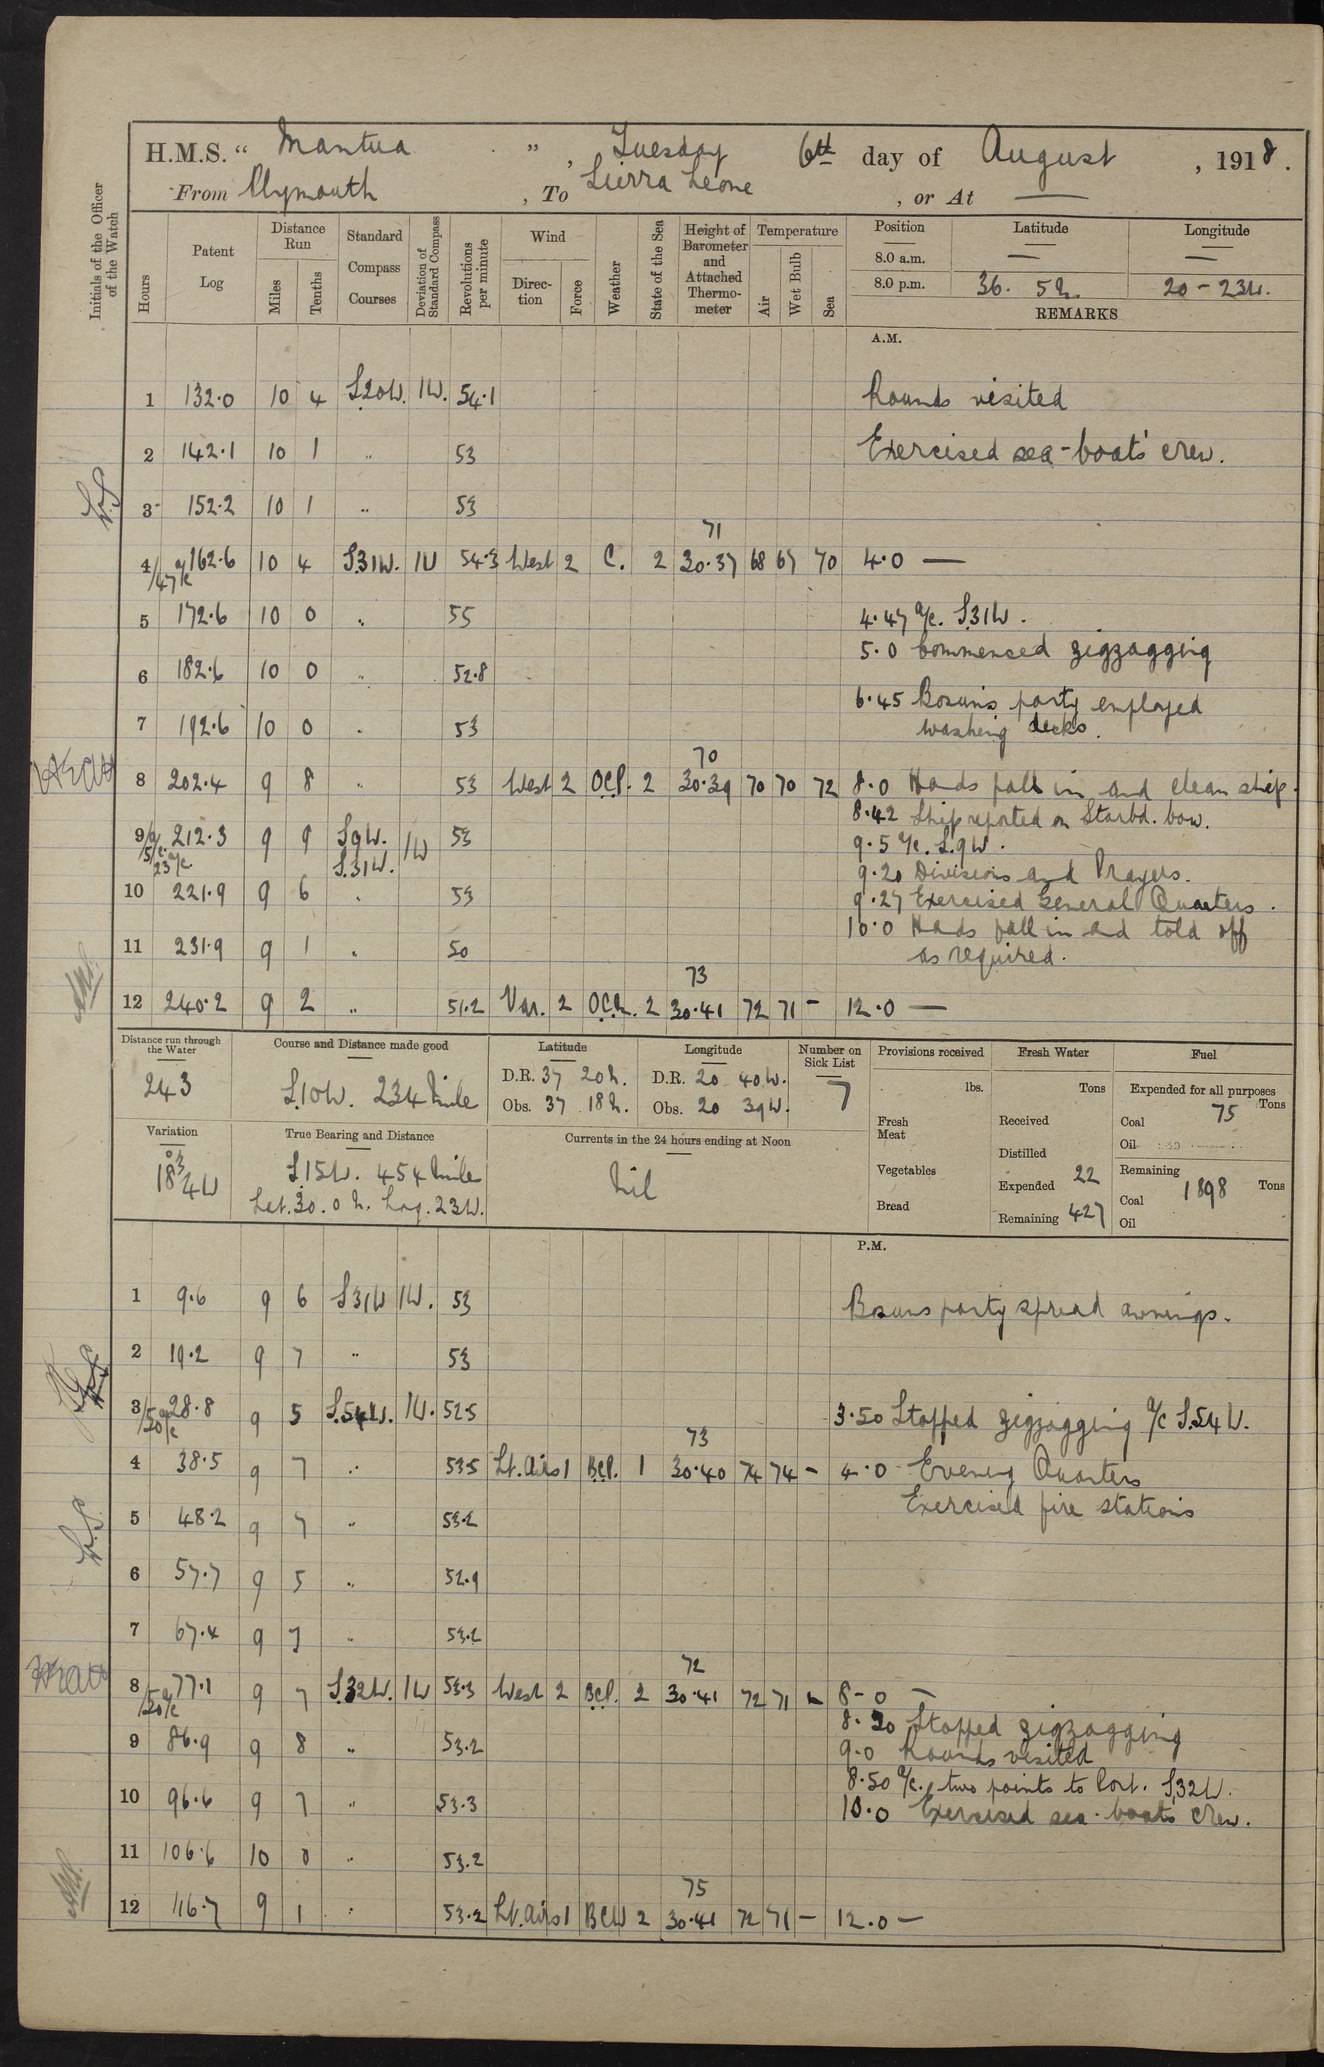 H.M.S. " Mantua " , Tuesday 6th day of August , 1918 .
From Plymouth , To Sierra Leone , or At —
Initials of the Officer of the Watch
Hours Patent Log Distance Run Miles Tenths Standard Compass Courses Deviation of Standard Compass Revolutions per minute Wind Direction Force Weather State of the Sea Height of Barometer and Attached Thermometer Temperature Air Wet Bulb Sea Position Latitude Longitude
8.0 a.m. — —
8.0 p.m. 36. 5 20 - 23W.
REMARKS
A.M.
1 132.0 10 4 S20W. 1W. 54.1 Rounds visited
2 142.1 10 1 " 53 Exercised sea-boats' crew.
3 152.2 10 1 " 53
71
4 /47 a/c 162.6 10 4 S31W. 1W 54.3 West 2 C. 2 30.37 68 67 70 4.0 —
5 172.6 10 0 " 55 4.47 a/c. S31W.
5.0 Commenced zigzagging
6 182.6 10 0 " 52.8
6.45 Bosun's party employed
7 192.6 10 0 " 53 washing decks.
70
8 202.4 9 8 " 53 West 2 OCP. 2 30.39 70 70 72 8.0 Hands fall in and clean ship.
8.42 Ship reported on Starbd. bow.
9 /5 a/c. 23 a/c 212.3 9 9 S9W. 1W 53 9.5 a/c. S.9W.
S.31W.
9.20 Divisions and Prayers.
10 221.9 9 6 " 53 9.27 Exercised General Quarters.
10.0 Hands fall in and told off
11 231.9 9 1 " 50 as required.
73
12 240.2 9 2 " 51.2 Var. 2 2 30.41 72 71 - 12.0 —
Distance run through the Water Course and Distance made good Latitude Longitude Number on Sick List Provisions received Fresh Water Fuel
243 S10W. 234 Mile D.R. 37 20N. D.R. 20 40W. 7 lbs. Tons Expended for all purposes
Obs. 37 18N. Obs. 20 39W. Fresh Meat Received Coal 75 Tons
Variation True Bearing and Distance Currents in the 24 hours ending at Noon Distilled Oil
18 3/4W S15W. 454 Mile Nil Vegetables Expended 22 Remaining
Lat. 30. 0 N. Log. 23W. Bread Remaining 427 Coal 1898 Tons
Oil
P.M.
1 9.6 9 6 S31W 1W. 53 Bosuns party spread awnings.
2 19.2 9 7 " 53
3 /50 a/c 28.8 9 5 S.54W. 1W. 52.5 3.50 Stopped zigzagging a/c S.54W.
73
4 38.5 9 7 " 53.5 Lt. Airs 1 BCP. 1 30.40 74 74 - 4.0 Evening Quarters
Exercised fire stations
5 48.2 9 7 " 53.2
6 57.7 9 5 " 52.9
7 67.4 9 7 " 53.2
72
8 /50 a/c 77.1 9 7 S.32W. 1W 53.3 West 2 BCP. 2 30.41 72 71 - 8-0 —
8.20 Stopped zigzagging
9 86.9 9 8 " 53.2 9-0 Rounds visited
8.50 a/c. two points to Port. S32W.
10 96.6 9 7 " 53.3 10.0 Exercised sea-boats' crew.
11 106.6 10 0 " 53.2
75
12 116.7 9 1 " 53.2 Lt. Airs 1 BCW 2 30.41 72 71 - 12.0 —